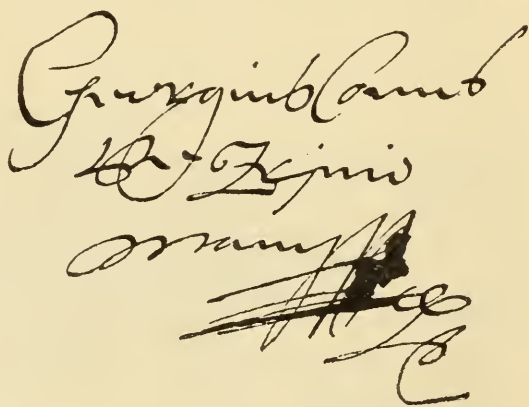 Georgius Comes
de Zrinio
manu